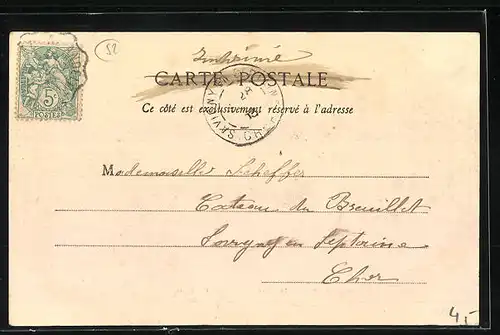 52
Imprimé
CARTE POSTALE
Ce côté est exclusivement réservé à l'adresse
5c
POSTES
Mademoiselle Scheffer
Cateau du Breuillet
Savigny en Septaine
Cher
4,-